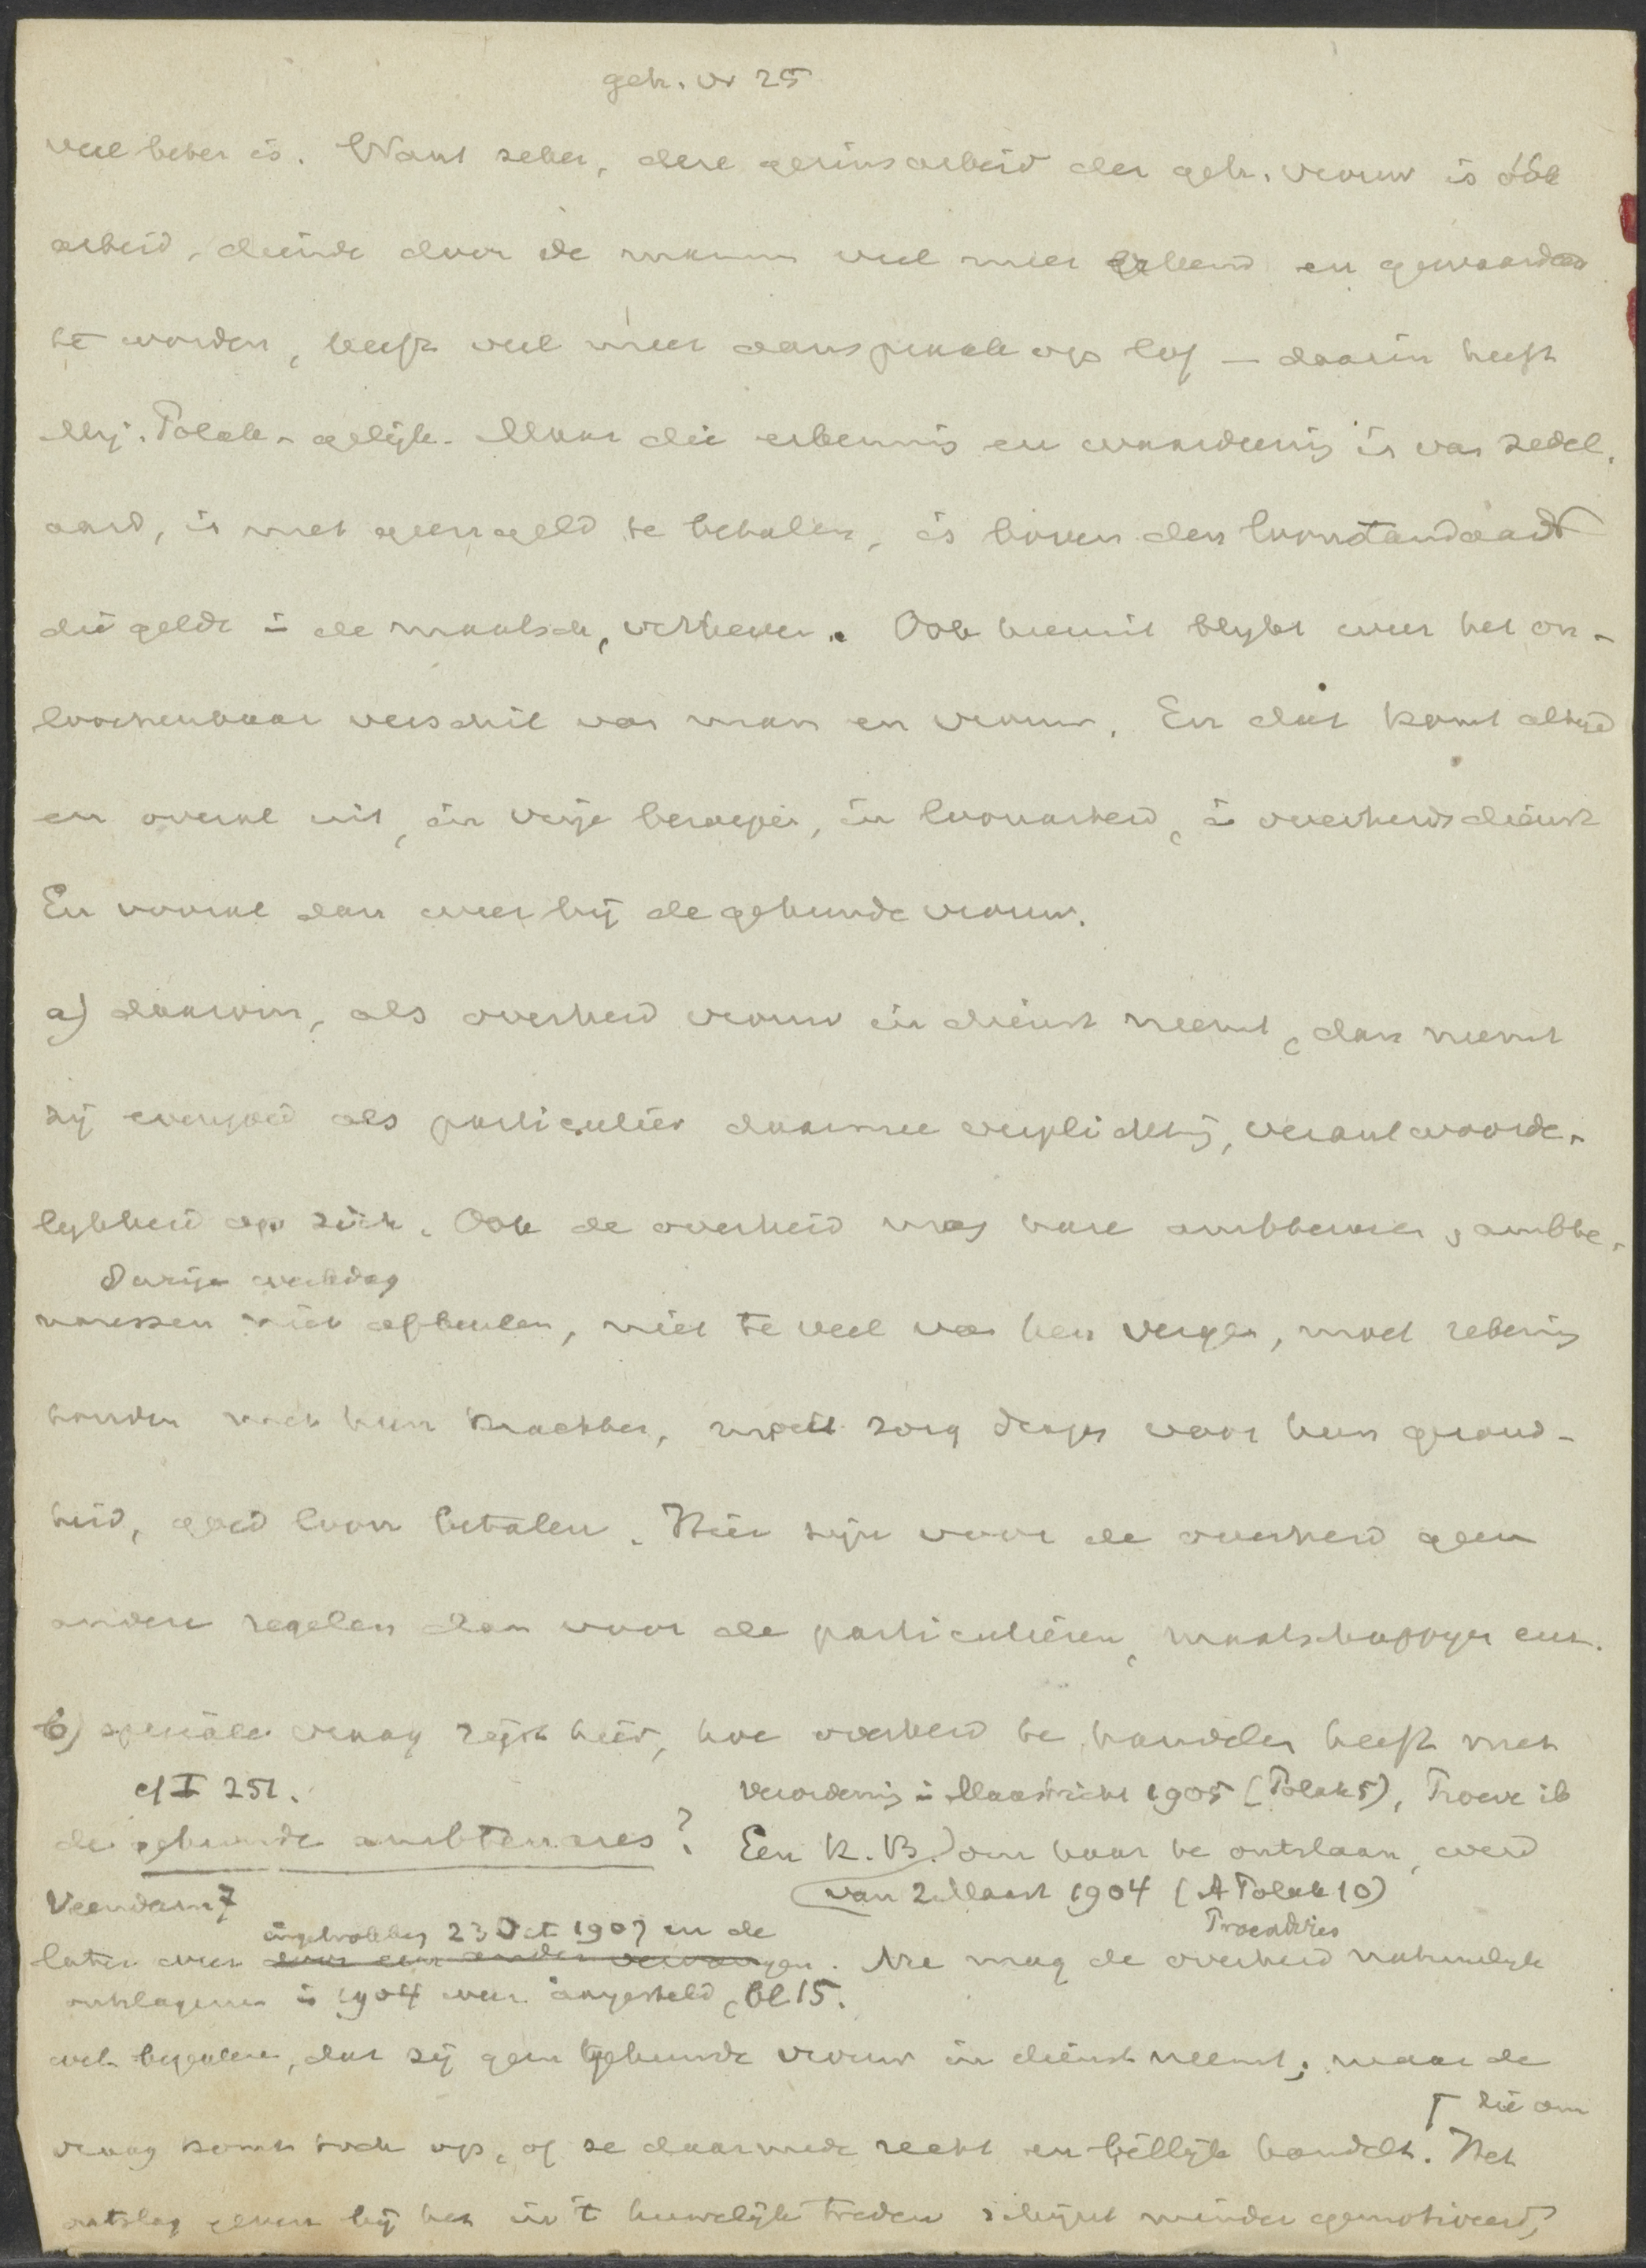 geh. vr 25
veel beter is. Want zeker, deze gezinsarbeid der geh. vrouw is óók
arbeid, diende door de mannen veel meer erkend en gewaardeerd
te worden, heeft veel meer aanspraak op lof – daarin heeft
Mej. Polak gelijk. Maar die erkenning en waardeering is van zedel.
aard, is met geen geld te betalen, is boven den loonstandaard
die geldt in de maatsch, verheven. Ook hieruit blijkt weer het on-
loochenbaar verschil van man en vrouw. En dat komt altijd
en overal uit, in vrije beroepen, in loonarbeid, in overheidsdienst
En vooral dan weer bij de gehuwde vrouw.
a) daarom, als overheid vrouw in dienst neemt, dan neemt
zij evengoed als particulier daarmee verplichting, verantwoorde-
lijkheid op zich. Ook de overheid mag hare ambtenaren, ambte-
8 urige werkdag
naressen niet afbeulen, niet te veel van hen vergen, moet rekening
houden met hun krachten, moet zorg dragen voor hun gezond-
heid, goed loon betalen. Hier zijn voor de overheid geen
andere regelen dan voor de particulieren, maatschappijen enz.
b) speciale vraag rijst hier, hoe overheid te handelen heeft met
cf I 251. verordening in Maastricht 1905 (Polak 5), Troeve ib
de gehuwde ambtenares? Een K.B. om haar te ontslaan, werd
Veendam 7 van 2 Maart 1904 (A Polak 10)
ingetrokken 23 Oct 1907 en de Troelstra's
later weer door een ander vervangen. Nu mag de overheid natuurlijk
ontslagene in 1904 weer aangesteld, bl 15.
wel bepalen, dat zij geen gehuwde vrouw in dienst neemt; maar de
die om
vraag komt toch op, of ze daarmede recht en billijk handelt. Het
ontslag geven bij het in 't huwelijk treden schijnt minder gemotiveerd,